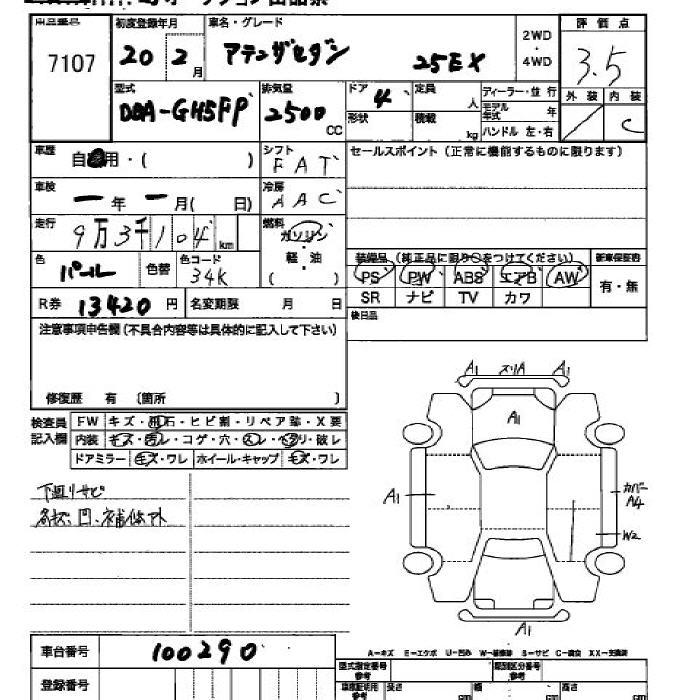 7107
初度登録年月
20 2月
車名・グレード
アテンザセダン 25EX
2WD
・
4WD
評価点
3.5
外装 内装
C
型式
DBA-GH5FP
排気量
2500
CC
ドア
4
形状
定員
人
積載
kg
ディーラー・並行
モデル年式 年
ハンドル 左・右
車歴
自家用・( )
シフト
FAT
セールスポイント (正常に機能するものに限ります)
車検
ー年ー月( 日)
冷房
AAC
走行
9万3千104km
燃料
ガソリン
・
軽・油
( )
色
パール
色替
色コード
34K
装備品 (純正品に限り○をつけてください)
新車保証書
PS PW ABS エアB AW
有・無
SR ナビ TV カワ
後日品
R券 13420円
名変期限 月 日
注意事項申告欄(不具合内容等は具体的に記入して下さい)
修復歴 有 〔箇所 〕
検査員記入欄
FW キズ・飛石・ヒビ割・リペア跡・X要
内装 キズ・汚レ・コゲ・穴・スレ・ヘタリ・破レ
ドアミラー キズ・ワレ ホイール・キャップ キズ・ワレ
下廻りサビ
A1 スリA A1
A1
A1
カバー
A4
W2
A1
A-キズ E-エクボ U-凹み W-補修跡 S-サビ C-腐食 XX-交換済
車台番号 100290
型式指定番号 類別区分番号
登録番号
車庫証明用参考 長さ cm 幅 cm 高さ cm